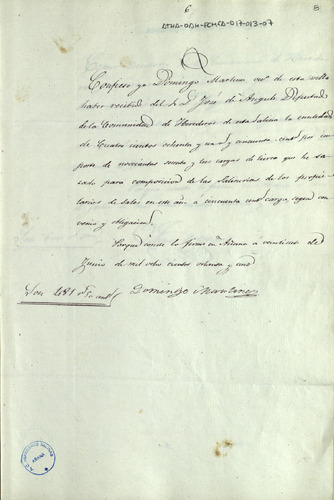 6
8
ATHA-DAH-FCHCD-017-013-07
Confieso yo Domingo Martinez vecº de esta villa
haber recibido del Sr D. José de Angulo Diputado
de la Comunidad de Herederos de esta Salina la cantidad
de Cuatro cientos ochenta y un rs y cincuenta centº por im
porte de novecientas sesenta y tres cargas de tierra que he sa
cado para composicion de las Salinas de los propie
tarios de sales en este año a cincuenta centº carga segun con
venio y obligacion
Para que conste lo firmo en Añana a veintiseis de
Junio de mil ocho cientos ochenta y uno
Son 481 rs centº
Domingo Martinez
AÑANA